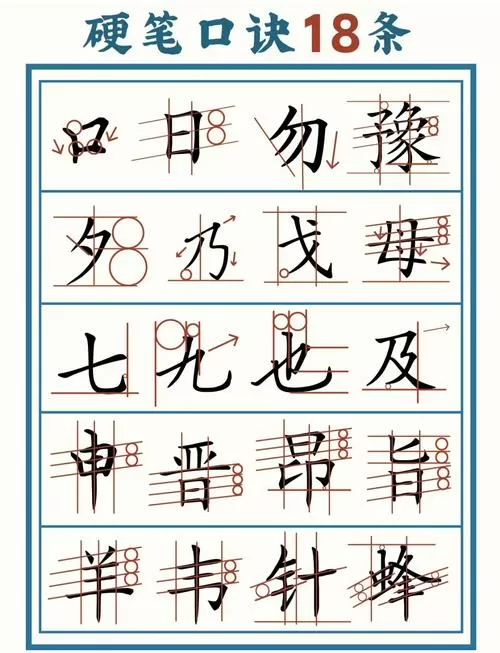 硬笔口诀18条
口日勿豫
夕乃戈母
七九也及
申晋昂旨
羊韦针蜂